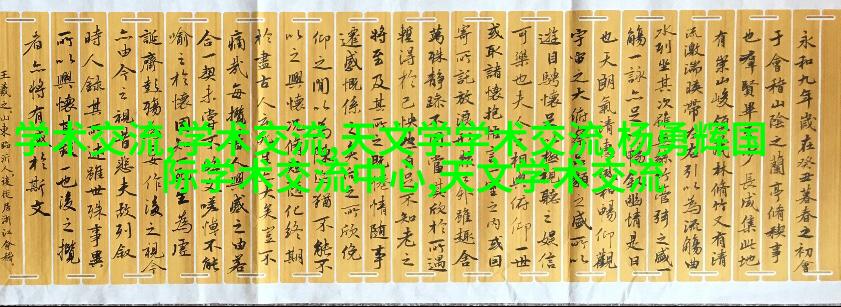 学术交流,学术交流,天文学学术交流,杨勇辉国
际学术交流中心,天文学术交流
永和九年歲在癸丑暮春之初會
于會稽山陰之蘭亭脩稧事
也羣賢畢至少長咸集此地
有崇山峻領茂林脩竹又有清
流激湍暎帶左右引以為流觴曲
水列坐其次雖無絲竹管弦之盛一
觴一詠亦足以暢敘幽情是日
也天朗氣清惠風和暢仰觀
宇宙之大俯察品類之盛所以
遊目騁懷足以極視聽之娛信
可樂也夫人之相與俯仰一世
或取諸懷抱悟言一室之內或因
寄所託放浪形骸之外雖趣舍
萬殊靜躁不同當其欣於所遇
暫得於己快然自足不知老之
將至及其所之既惓情随事
遷感慨係之矣向之所欣俛
仰之間以為陳迹猶不能不
以之興懷況脩短隨化終期
於盡古人云死生亦大矣豈不
痛哉每攬昔人興感之由若
合一契未嘗不臨文嗟悼不能
喻之於懷固知一死生為虛
誕齊彭殤為妄作後之視今
亦由今之視昔悲夫故列敘
時人錄其所述雖世殊事異
所以興懷其致一也後之攬
者亦將有感於斯文
王羲之山東臨沂人後徙居浙江會稽